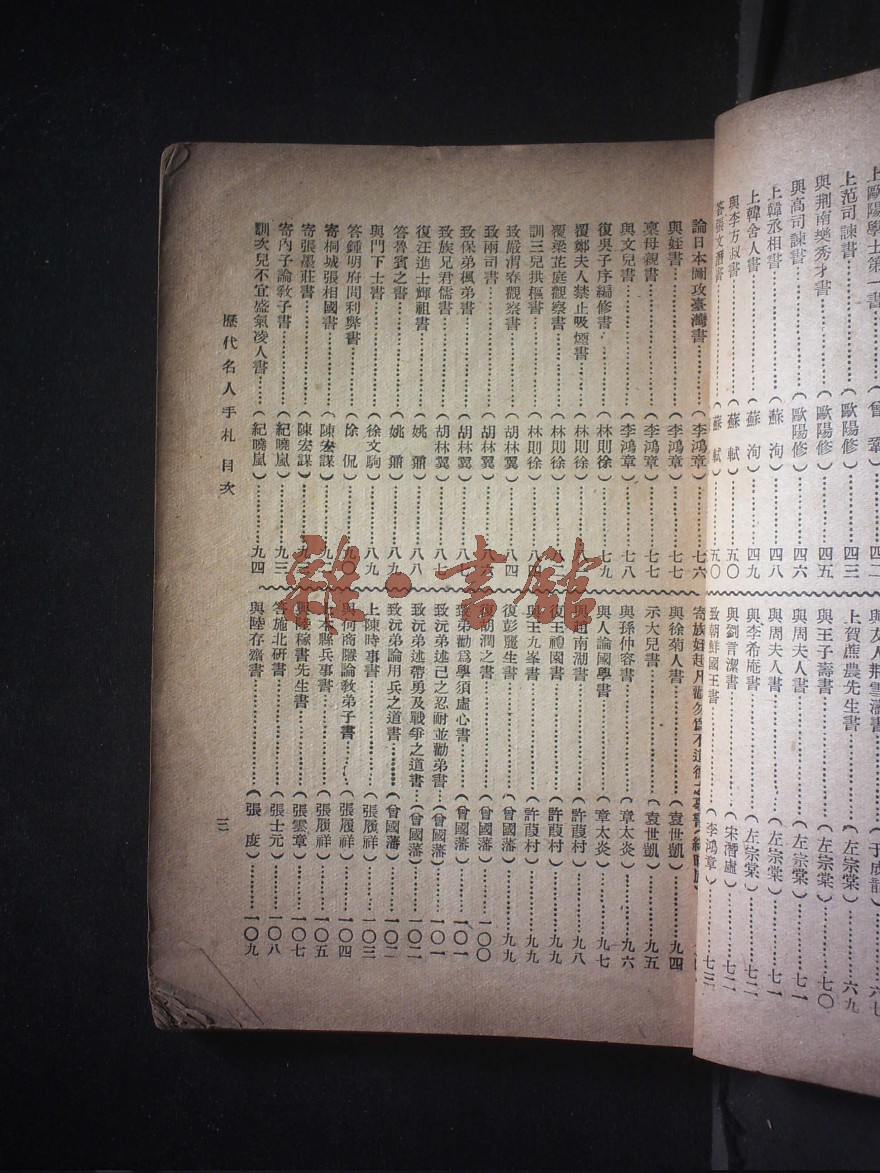 上歐陽學士第一書…………(曾 鞏)…………四二
上范司諫書…………(歐陽修)…………四三
與荆南樂秀才書…………(歐陽修)…………四五
與高司諫書…………(歐陽修)…………四六
上韓丞相書…………(蘇 洵)…………四九
上韓舍人書…………(蘇 洵)…………四九
與李方叔書…………(蘇 軾)…………五〇
答張文潛書…………(蘇 軾)…………五〇
與友人荆雪濤書…………(于成龍)…………六七
上賀蔗農先生書…………(左宗棠)…………六九
與王子壽書…………(左宗棠)…………七〇
與周夫人書…………(左宗棠)…………七一
與周夫人書…………(左宗棠)…………七一
與李希庵書…………(左宗棠)…………七二
與劉言潔書…………(宋潛虛)…………七二
致朝鮮國王書…………(李鴻章)…………七三
論日本圖攻臺灣書…………(李鴻章)…………七六
與姪書…………(李鴻章)…………七七
稟母親書…………(李鴻章)…………七七
與文兒書…………(李鴻章)…………七八
復吳子序編修書…………(林則徐)…………七九
覆鄭夫人禁止吸煙書…………(林則徐)
覆梁茝庭觀察書…………(林則徐)
訓三兒拱樞書…………(林則徐)…………八四
致嚴渭春觀察書…………(胡林翼)…………八四
致兩司書…………(胡林翼)…………八六
致保弟楓弟書…………(胡林翼)…………八七
致族兄君儒書…………(胡林翼)…………八七
復汪進士輝祖書…………(姚 鼐)…………八八
答魯賓之書…………(姚 鼐)…………八九
與門下士書…………(徐文駒)…………八九
答鍾明府問利弊書…………(徐 侃)…………九〇
寄桐城張相國書…………(陳宏謀)
寄張墨莊書…………(陳宏謀)
寄內子論教子書…………(紀曉嵐)…………九三
訓次兒不宜盛氣凌人書…………(紀曉嵐)…………九四
與徐菊人書…………(袁世凱)…………九四
示大兒書…………(袁世凱)…………九五
與孫仲容書…………(章太炎)…………九六
與人論國學書…………(章太炎)…………九七
與趙南湖書…………(許葭村)…………九八
復王禮園書…………(許葭村)…………九九
與王九峯書…………(許葭村)…………九九
復彭麗生書…………(曾國藩)…………九九
復胡潤之書…………(曾國藩)…………一〇〇
致弟勸爲學須虛心書…………(曾國藩)…………一〇一
致沅弟述己之忍耐並勸弟書…(曾國藩)…………一〇一
致沅弟述帶勇及戰爭之道書…(曾國藩)…………一〇二
致沅弟論用兵之道書…………(曾國藩)…………一〇二
上陳時事書…………(張履祥)…………一〇三
與何商隱論教弟子書…………(張履祥)…………一〇四
上本縣兵事書…………(張履祥)…………一〇五
與陸稼書先生書…………(張雲章)…………一〇七
答施北研書…………(張士元)…………一〇八
與陸存齋書…………(張 度)…………一〇九
歷代名人手札 目次
三
雜·書館